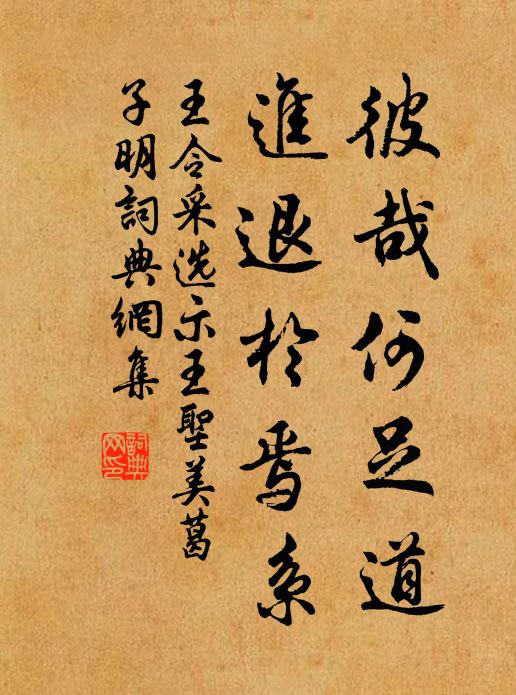 彼哉何足道
進退於焉系
王令采选示王聖美葛
子明詞典網集
詞典
网印